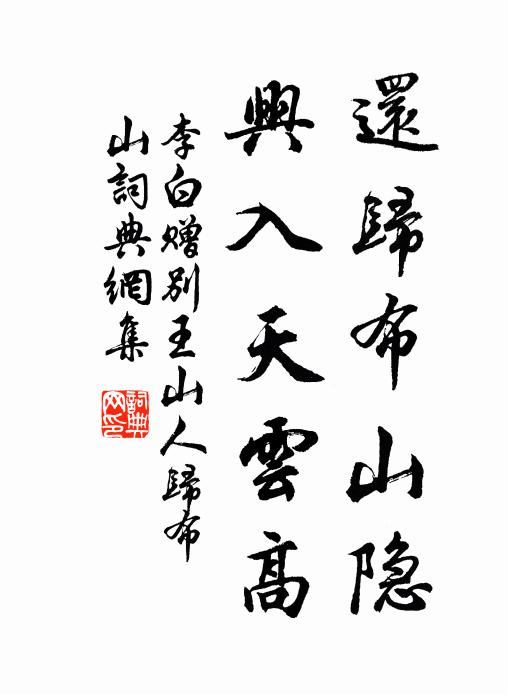 還歸布山隐
興入天雲高
李白赠别王山人歸布
山詞典網集
詞典
网印